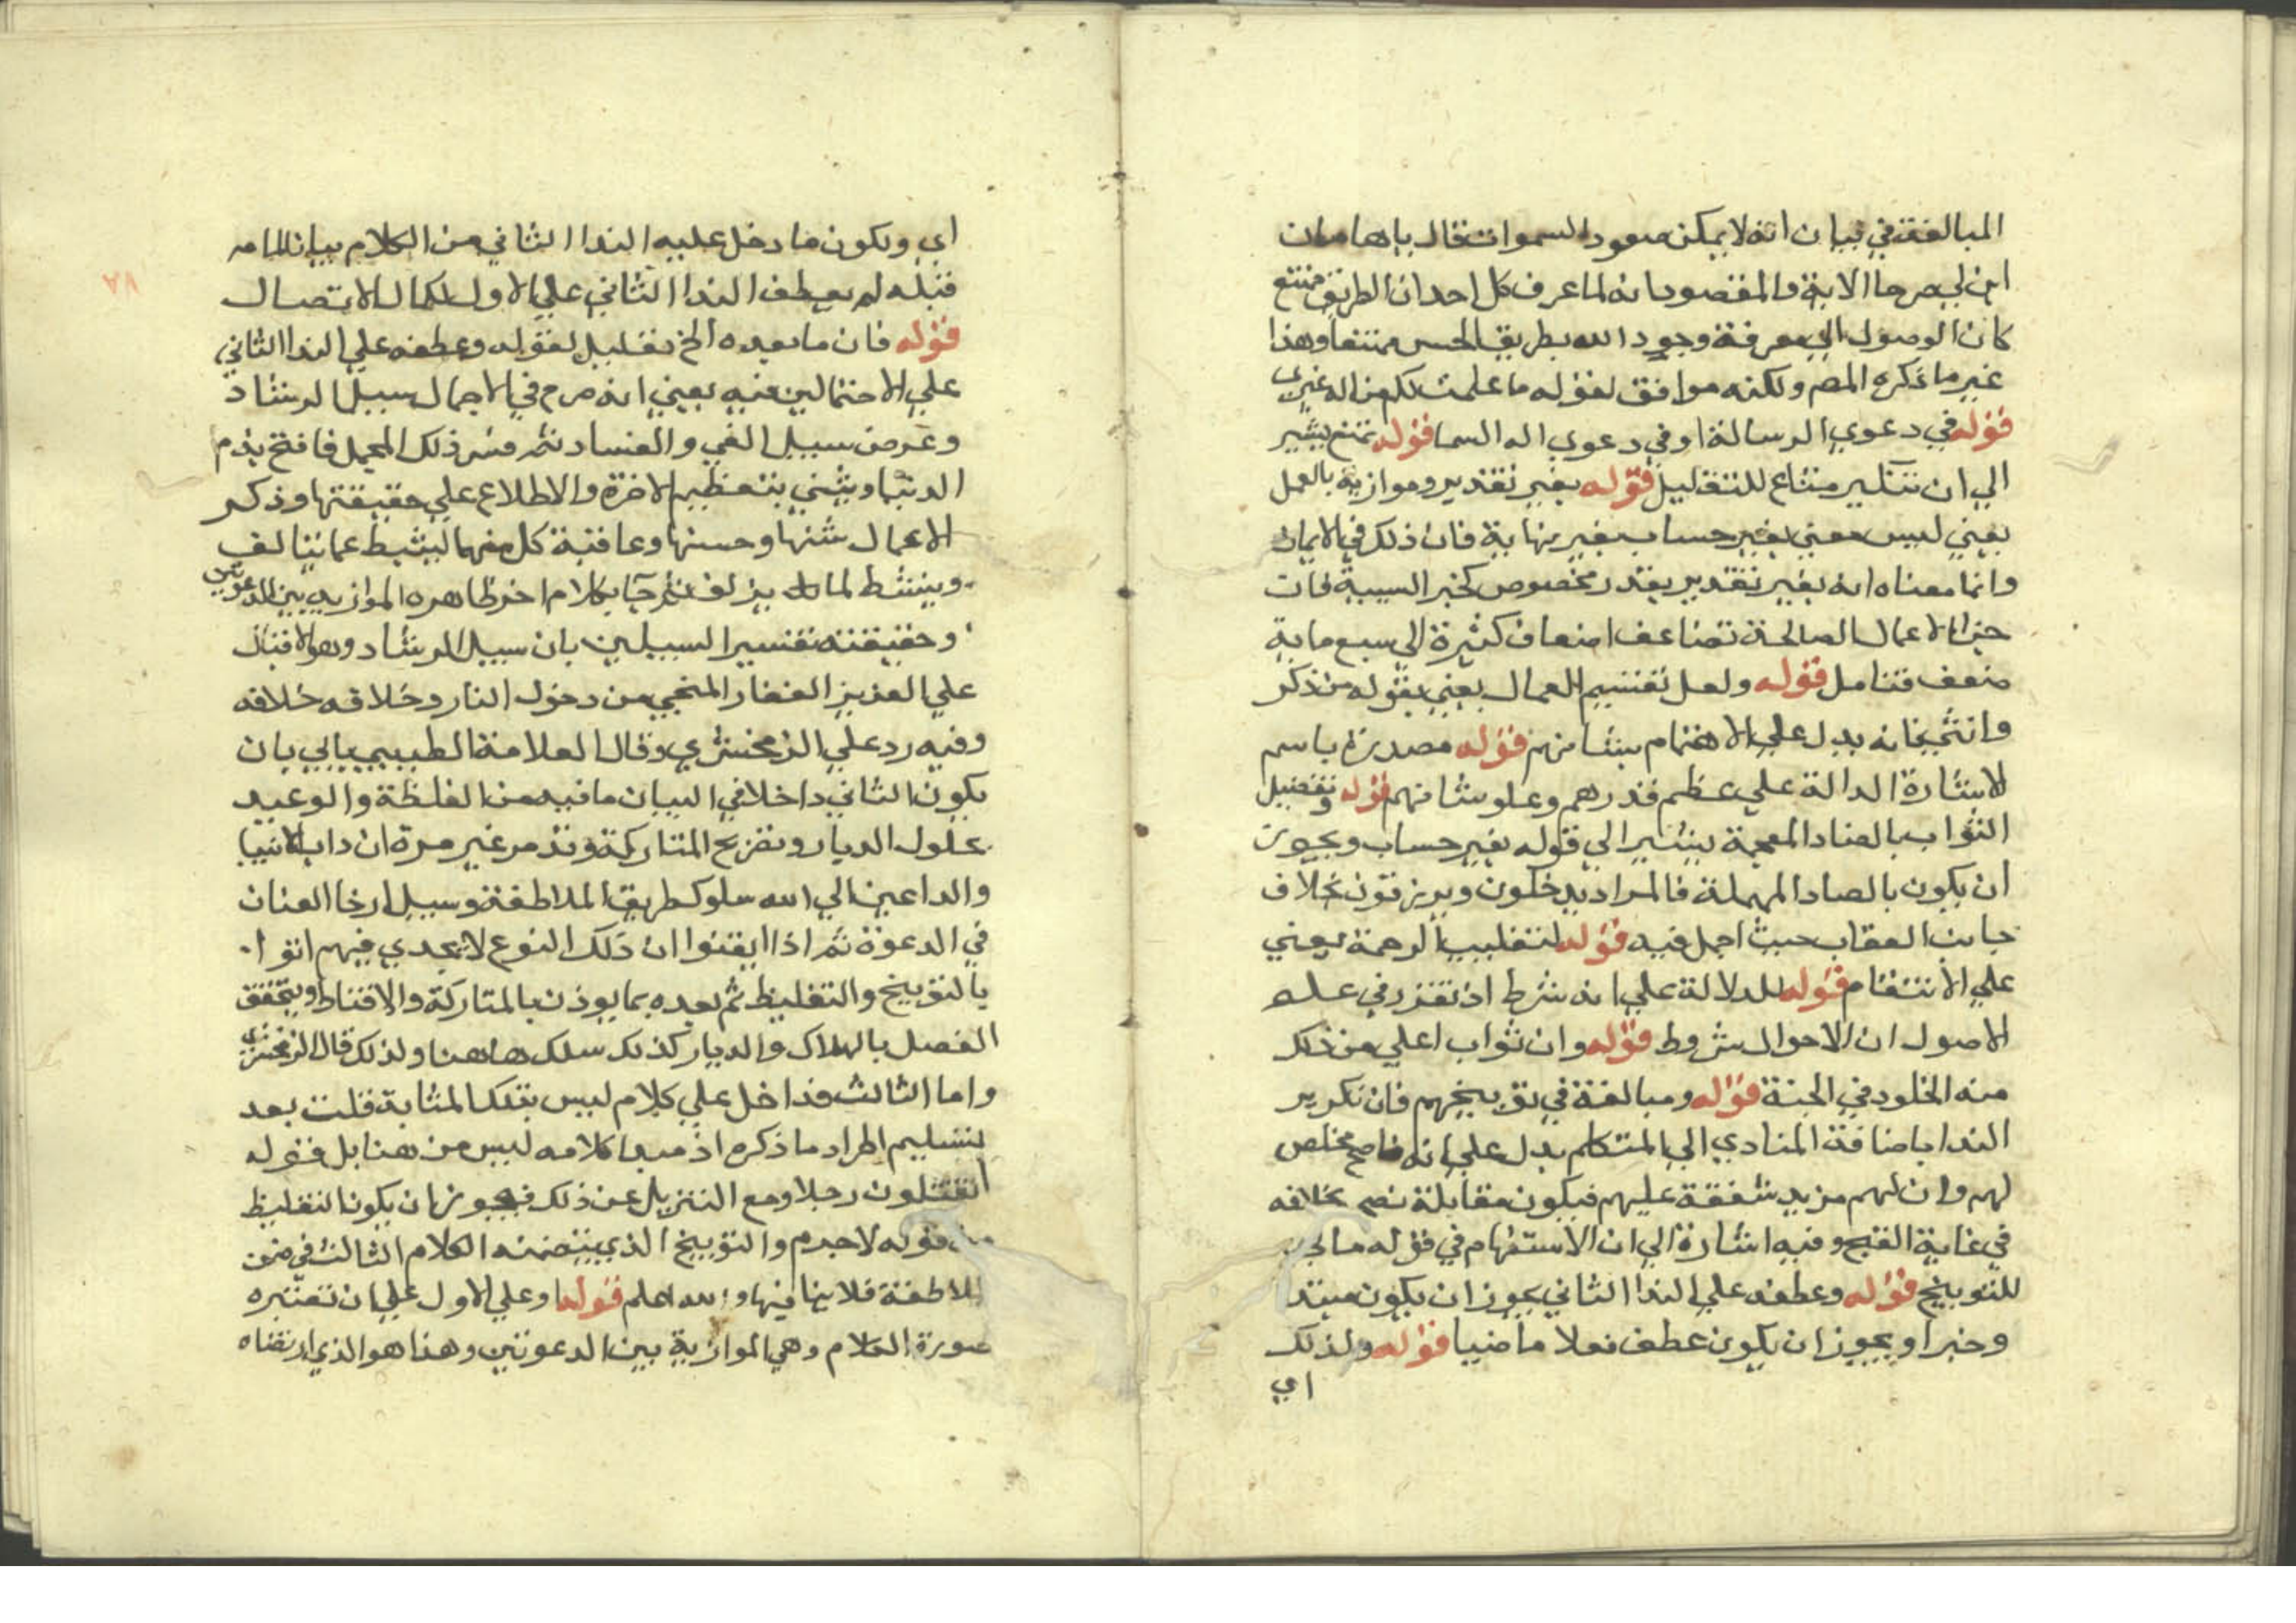 المبالغة في بيان انه لا يمكن صعود السموات قال يا هامان
ابن لي صرحا الاية والمقصود انه لما عرف كل احد ان الطريق ممتنع
كان الوصول الي معرفة وجود الله بطريق الحس ممتنعا وهذا
غير ما ذكره المص ولكنه موافق لقوله ما علمت لكم من اله غيري
قوله في دعوي الرسالة او في دعوي اله السما قوله تمتع يشير
الي ان تنكير متاع للتقليل قوله بغير تقدير وموازنة بالعمل
يعني ليس معني بغير حساب بغير نهاية فان ذلك في الايمان
وانما معناه انه بغير تقدير بقدر مخصوص كخبر السيية فان
جزا الاعمال الصالحة تضاعف اضعاف كثيرة الي سبع ماية
ضعف فتامل قوله ولعل تقسيم العمال يعني بقوله من ذكر
وانثي فانه يدل علي الاهتمام بشانهم قوله مصدرة باسم
الاشارة الدالة علي عظم قدرهم وعلو شانهم قوله وتفضيل
الثواب بالضاد المعجمة يشير الي قوله بغير حساب ويجوز
ان يكون بالصاد المهملة فالمراد يدخلون ويرزقون بخلاف
جانب العقاب حيث اجمل فيه قوله لتغليب الرحمة يعني
علي الانتقام قوله للدلالة علي انه شرط اذ تقرر في علم
الاصول ان الاحوال شروط قوله وان ثواب اعلي من ذلك
منه الخلود في الجنة قوله ومبالغة في توبيخهم فان تكرير
الندا باضافة المنادي الي المتكلم يدل علي انه ناصح مخلص
لهم وان لهم مزيد شفقة عليهم فيكون مقابلة نصحه بخلافه
في غاية القبح وفيه اشارة الي ان الاستفهام في قوله مالي
للتوبيخ قوله وعطفه علي الندا الثاني يجوز ان يكون مبتدا
وخبرا ويجوز ان يكون عطف فعلا ماضيا قوله ولذلك
اي
اي ولكون ما دخل عليه الندا الثاني من الكلام بيانا لما مر
قبله لم يعطف الندا الثاني علي الاول لكمال الاتصال
قوله فان ما بعده الخ تعليل لقوله وعطفه علي الندا الثاني
علي الاحتمالين فيه يعني انه صرح في الاجمال سبيل الرشاد
وعرض سبيل الغي والفساد ثم فسر ذلك المجمل فافتتح بذم
الدنيا ويثني بتعظيم الاخرة والاطلاع علي حقيقتها وذكر
الاعمال سيئها وحسنها وعاقبة كل منهما ليثبط عما يتلف
وينشط لما يزلف ثم جا بكلام اخر ظاهره الموازنه بين الدعوتين
وحقيقته تفسير السبيلين بان سبيل الرشاد وهو الاقبال
علي العزيز الغفار المنجي من دخول النار وخلافه خلافه
وفيه رد علي الزمخشري وقال العلامة الطيبي يابي بان
يكون الثاني داخلا في البيان ما فيه من الغلظة والوعيد
بحلول الديار وتصريح المتاركة وقد مر غير مرة ان داب الانبيا
والداعين الي الله سلوك طريق الملاطفة وسبيل ارخا العنان
في الدعوة ثم اذا ايقنوا ان ذلك النوع لا يجدي فيهم اتوا
بالتوبيخ والتغليظ ثم بعده بما يوذن بالمتاركة والاقناط ويتحقق
الفصل بالهلاك والديار كذلك سلك هاهنا ولذلك قال الزمخشري
واما الثالث فداخل علي كلام ليس بتلك المثابة قلت بعد
تسليم اطراد ما ذكره اذ مبدا كلامه ليس من هنا بل قوله
اتقتلون رجلا ومع التنزيل عن ذلك فيجوز ان يكون التغليظ
من قوله لا جرم والتوبيخ الذي يتضمنه الكلام الثالث في ضمن
الملاطفة فلا ينافيها والله اعلم قوله او علي الاول علي ان تعتبره
صورة الكلام وهي الموازنة بين الدعوتين وهذا هو الذي ارتضاه